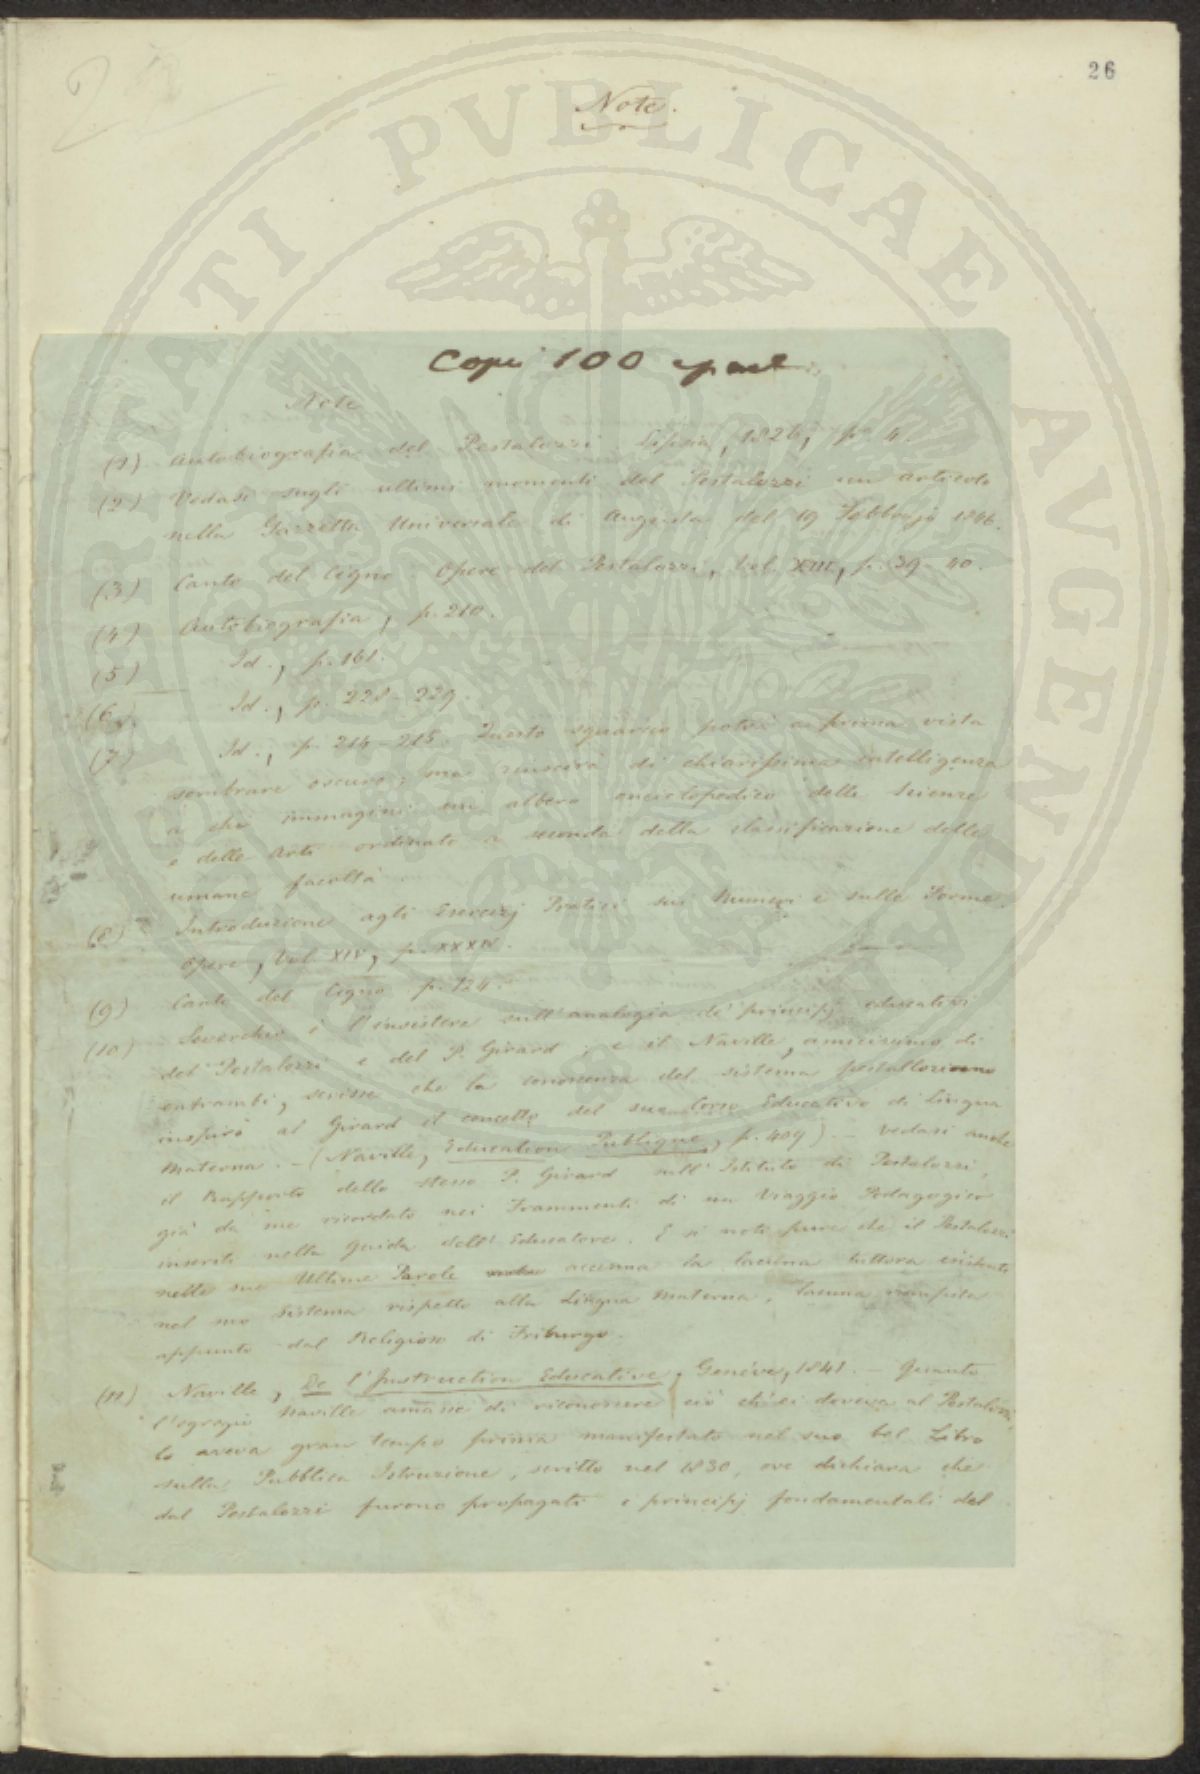 26
2
Note.
Copie 100
Note
(1) Autobiografia del Pestalozzi. Lipsia, 1826, p. 4.
(2) Vedasi sugli ultimi momenti del Pestalozzi un articolo
nella Gazzetta Universale di Augusta del 19 Febbrajo 1846.
(3) Canto del Cigno. Opere del Pestalozzi, Vol. XIII, p. 39-40.
(4) Autobiografia, p. 210.
(5) Id., p. 161.
(6) Id., p. 228-229.
(7) Id., p. 214-215. Questo squarcio potrà a prima vista
sembrare oscuro; ma riuscirà di chiarissima intelligenza
a chi immagini un albero enciclopedico delle Scienze
e delle Arti ordinato a seconda della classificazione delle
umane facoltà.
(8) Introduzione agli Esercizj Pratici sui Numeri e sulle Forme.
Opere, Vol. XIV, p. XXXIV.
(9) Canto del Cigno p. 124.
(10) Soverchio è l'insistere sull'analogia de' principj educativi
del Pestalozzi e del P. Girard; e il Naville, amicissimo di
entrambi, scrisse che la conoscenza del sistema pestalloziano
inspirò al Girard il concetto del suo Corso Educativo di Lingua
Materna. - (Naville, Education Publique, p. 409). - Vedasi anche
il Rapporto dello stesso P. Girard sull'Istituto di Pestalozzi,
già da me ricordato nei Frammenti di un Viaggio Pedagogico
inseriti nella Guida dell'Educatore. E si noti pure che il Pestalozzi
nelle sue Ultime Parole accenna la lacuna tuttora esistente
nel suo Sistema rispetto alla Lingua Materna, lacuna riempita
appunto dal Religioso di Friburgo.
(11) Naville, De l'Instruction Educative, Genève, 1841. - Quanto
l'egregio Naville amasse di riconoscere ciò ch'ei doveva al Pestalozzi,
lo aveva gran tempo prima manifestato nel suo bel Libro
sulla Pubblica Istruzione, scritto nel 1830, ove dichiara che
dal Pestalozzi furono propagati i principj fondamentali del